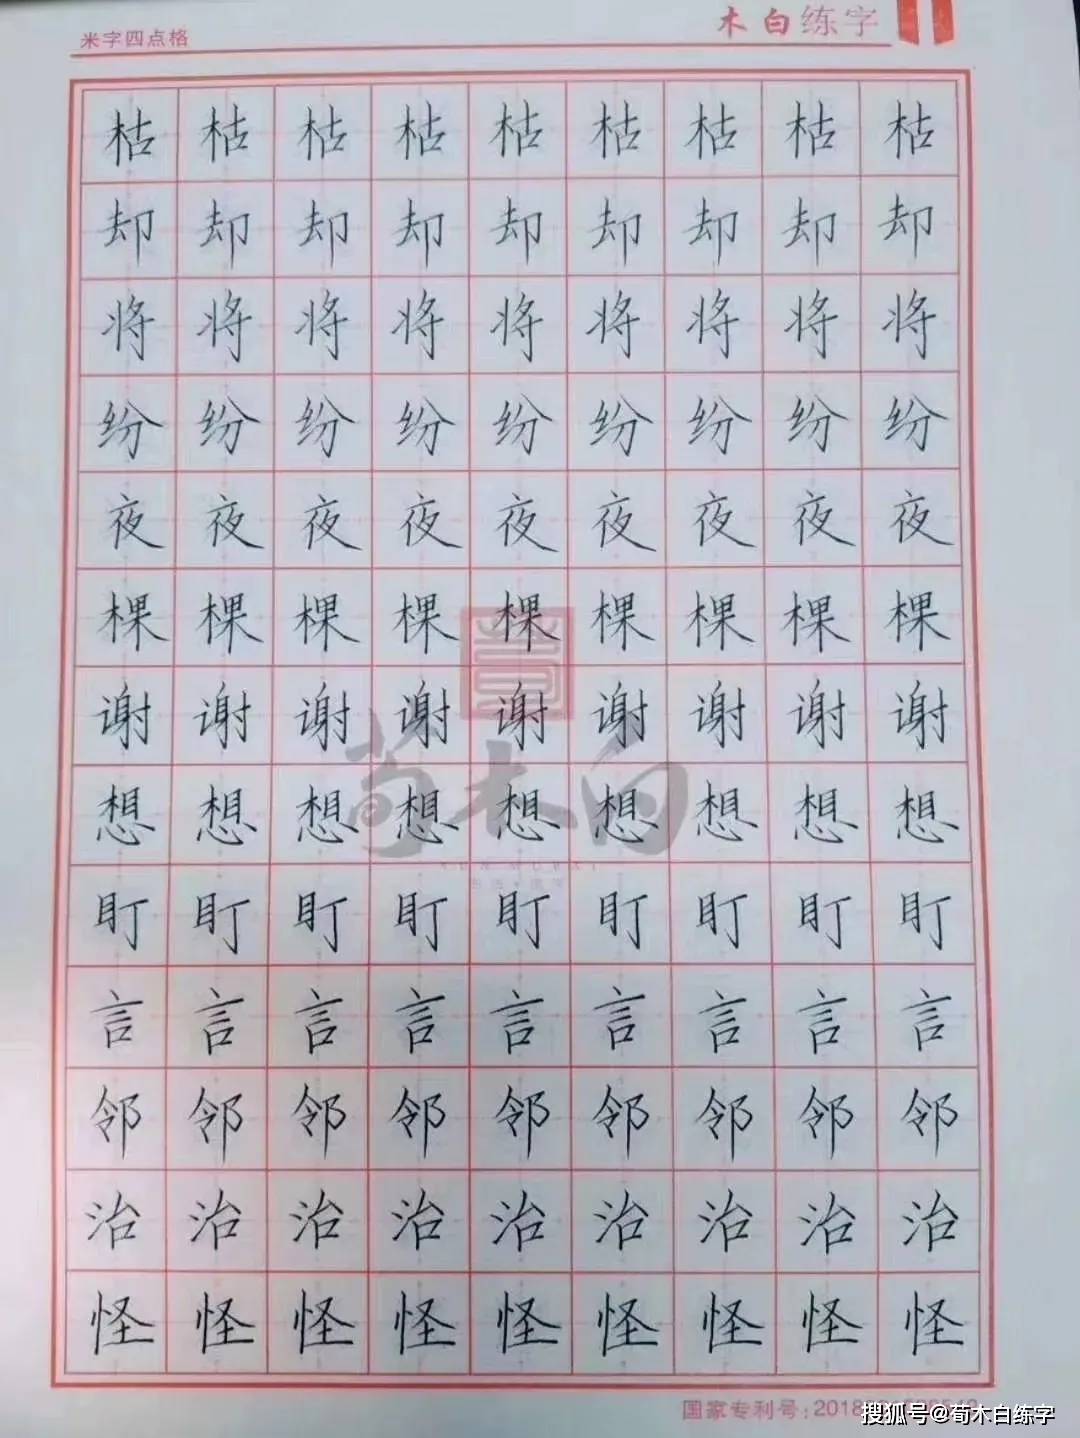 米字四点格
木白练字
枯枯枯枯枯枯枯枯枯
却却却却却却却却却
将将将将将将将将将
纷纷纷纷纷纷纷纷纷
夜夜夜夜夜夜夜夜夜
棵棵棵棵棵棵棵棵棵
谢谢谢谢谢谢谢谢谢
想想想想想想想想想
荀木白
盯盯盯盯盯盯盯盯盯
言言言言言言言言言
邻邻邻邻邻邻邻邻邻
治治治治治治治治治
怪怪怪怪怪怪怪怪怪
国家专利号:2018
搜狐号@荀木白练字